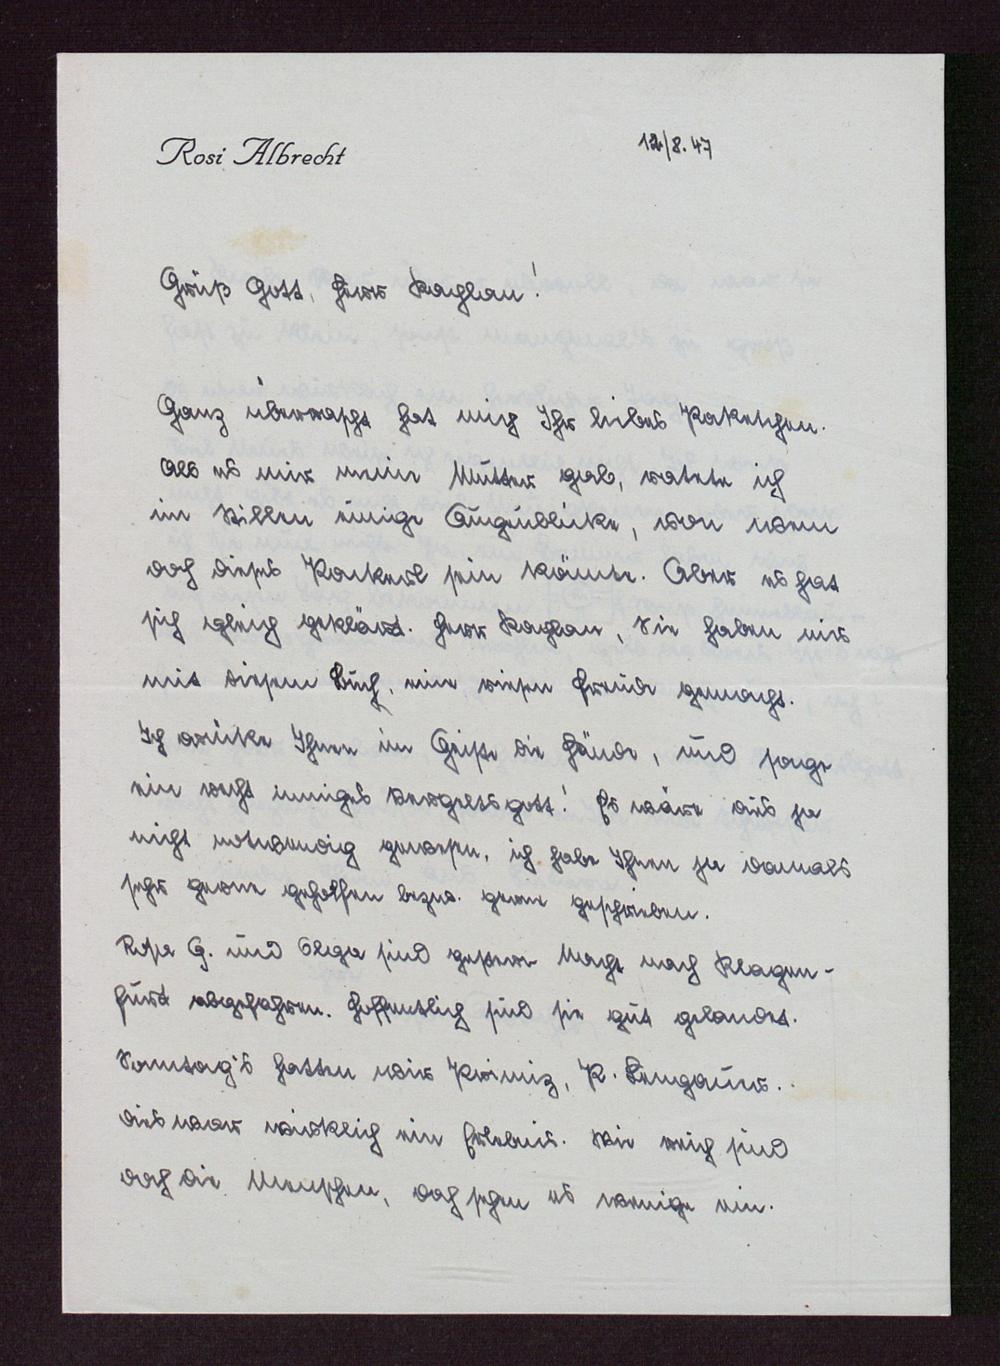 Rosi Albrecht
12/8.47
Grüß Gott, Herr Kaplan!
Ganz überrascht hat mich Ihr liebes Paketchen.
Als es mir meine Mutter gab, ratete ich
im Stillen einige Augenblicke, von wem
doch dieses Packerl sein könnte. Aber es hat
sich gleich geklärt. Herr Kaplan, Sie haben mir
mit diesem Buch, eine riesen Freude gemacht.
Ich drücke Ihnen im Geiste die Hände, und sage
ein recht inniges Vergeltsgott! Es wäre dies ja
nicht notwendig gewesen, ich habe Ihnen ja damals
sehr gerne geholfen bezw. gerne geschrieben.
Rosa G. und Olga sind gestern Nacht nach Klagen-
furt abgefahren. Hoffentlich sind sie gut gelandet.
Sonntag's hatten wir Primiz, P.
dies war wirklich ein Erlebnis. Wie reich sind
doch die Menschen, doch sehen es wenige ein.